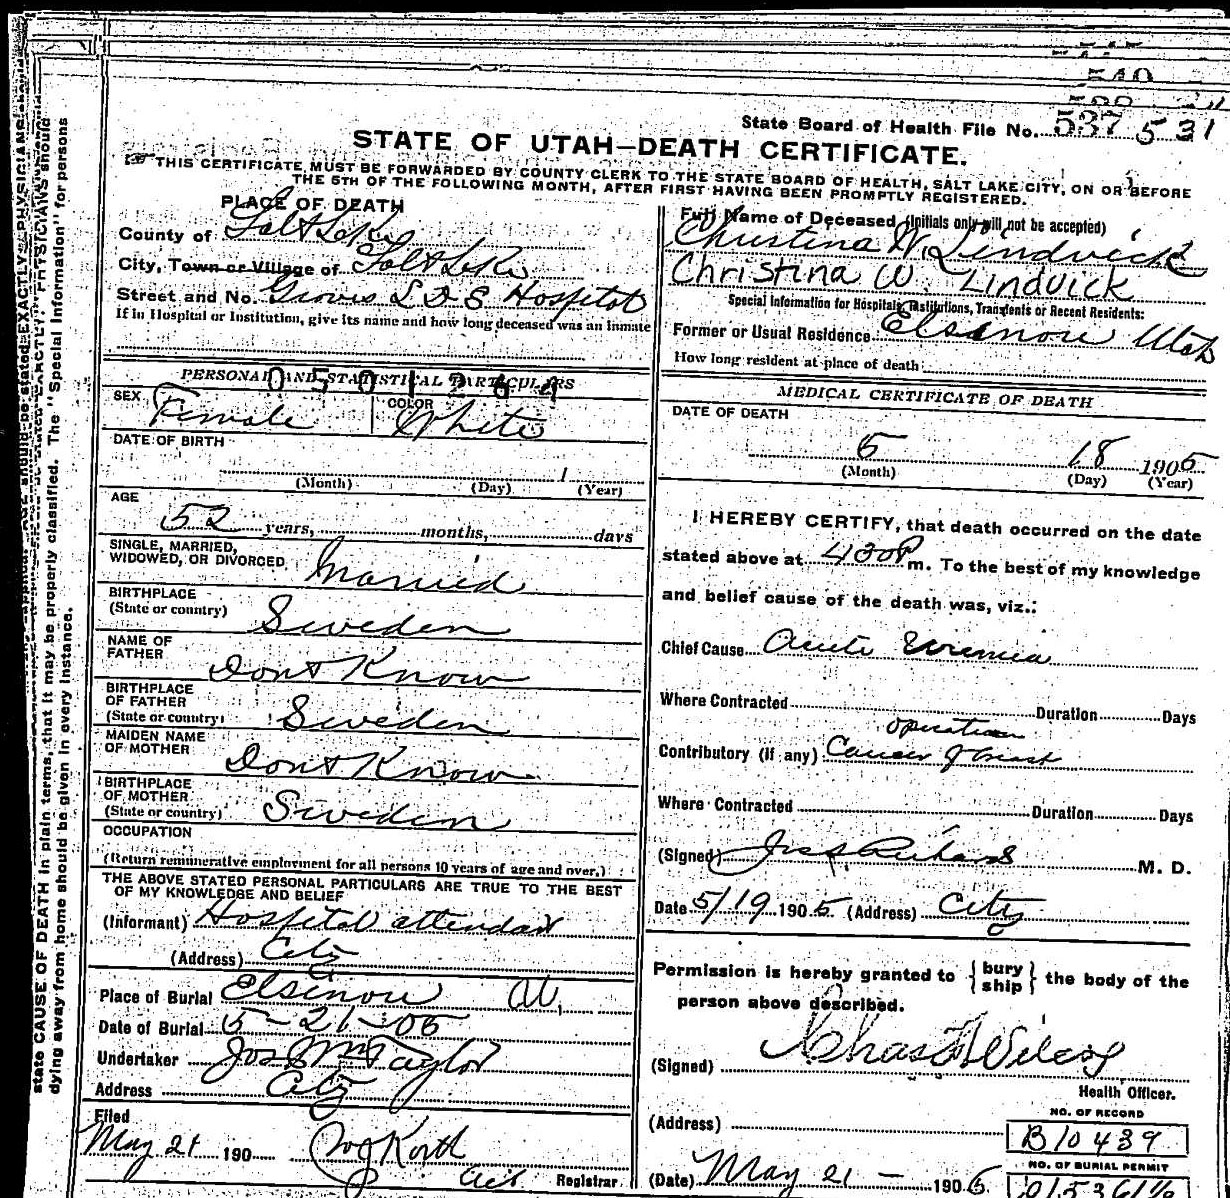 State Board of Health File No. 537 531
STATE OF UTAH—DEATH CERTIFICATE.
THIS CERTIFICATE MUST BE FORWARDED BY COUNTY CLERK TO THE STATE BOARD OF HEALTH, SALT LAKE CITY, ON OR BEFORE
THE 5TH OF THE FOLLOWING MONTH, AFTER FIRST HAVING BEEN PROMPTLY REGISTERED.
PLACE OF DEATH
County of Salt Lake
City, Town or Village of Salt Lake
Street and No. Groves L D S Hospital
If in Hospital or Institution, give its name and how long deceased was an inmate
PERSONAL AND STATISTICAL PARTICULARS
0501264
SEX Female COLOR White
DATE OF BIRTH
1
(Month) (Day) (Year)
AGE
52 years, months, days
SINGLE, MARRIED,
WIDOWED, OR DIVORCED Married
BIRTHPLACE
(State or country) Sweden
NAME OF
FATHER Dont Know
BIRTHPLACE
OF FATHER
(State or country) Sweden
MAIDEN NAME
OF MOTHER Dont Know
BIRTHPLACE
OF MOTHER
(State or country) Sweden
OCCUPATION
(Return remunerative employment for all persons 10 years of age and over.)
THE ABOVE STATED PERSONAL PARTICULARS ARE TRUE TO THE BEST
OF MY KNOWLEDGE AND BELIEF
(Informant) Hospital attendant
(Address) City
Place of Burial Elsinore Ut,
Date of Burial 5-21-05
Undertaker Jos Wm Taylor
Address City
Filed
May 21 190
Registrar
Full Name of Deceased (Initials only will not be accepted)
Christina W. Lindvick
Christina W. Lindvick
Special Information for Hospitals, Institutions, Transients or Recent Residents:
Former or Usual Residence Elsinore Utah
How long resident at place of death
MEDICAL CERTIFICATE OF DEATH
DATE OF DEATH
5 18 1905
(Month) (Day) (Year)
I HEREBY CERTIFY, that death occurred on the date
stated above at 430 P m. To the best of my knowledge
and belief cause of the death was, viz.:
Chief Cause Acute Uremia
Where Contracted Duration Days
operation
Contributory (if any) Cancer of breast
Where Contracted Duration Days
(Signed) Jos S Richards M. D.
Date 5/19 1905. (Address) City
Permission is hereby granted to {bury ship} the body of the
person above described.
(Signed) Chas F Wilcox
Health Officer.
(Address)
NO. OF RECORD
B10439
NO. OF BURIAL PERMIT
(Date) May 21 - 190
state CAUSE OF DEATH in plain terms, that it may be properly classified. The "Special Information" for persons
dying away from home should be given in every instance.